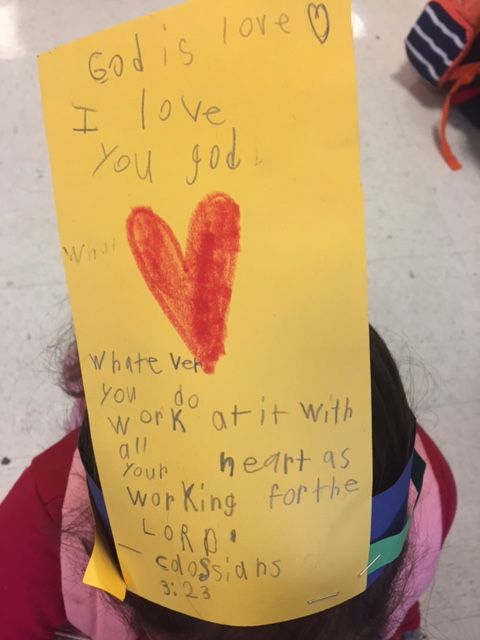 God is love ♡
I love
You god
What
Whatever
You do
work at it with
all
your heart as
working for the
LORD.
— Colossians
3:23